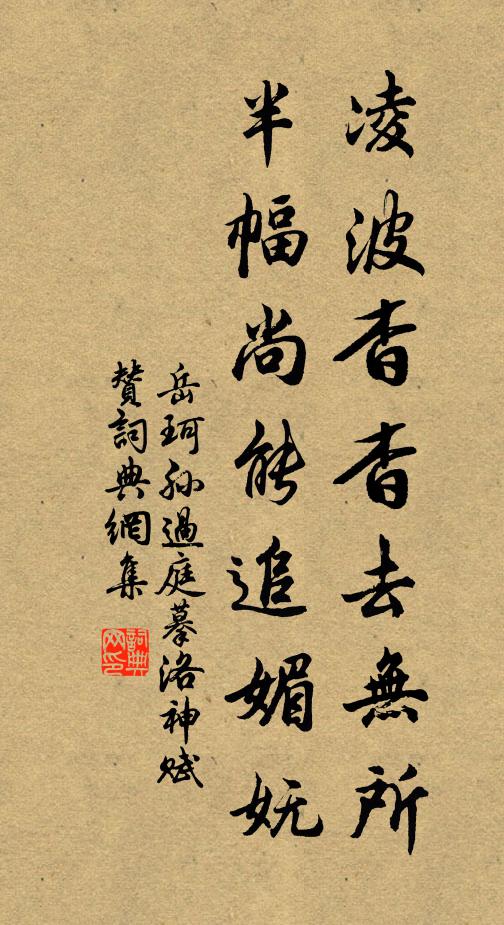 凌波杳杳去無所
半幅尚能追媚妩
岳珂孫過庭摹洛神賦
贊詞典網集
詞典
网印